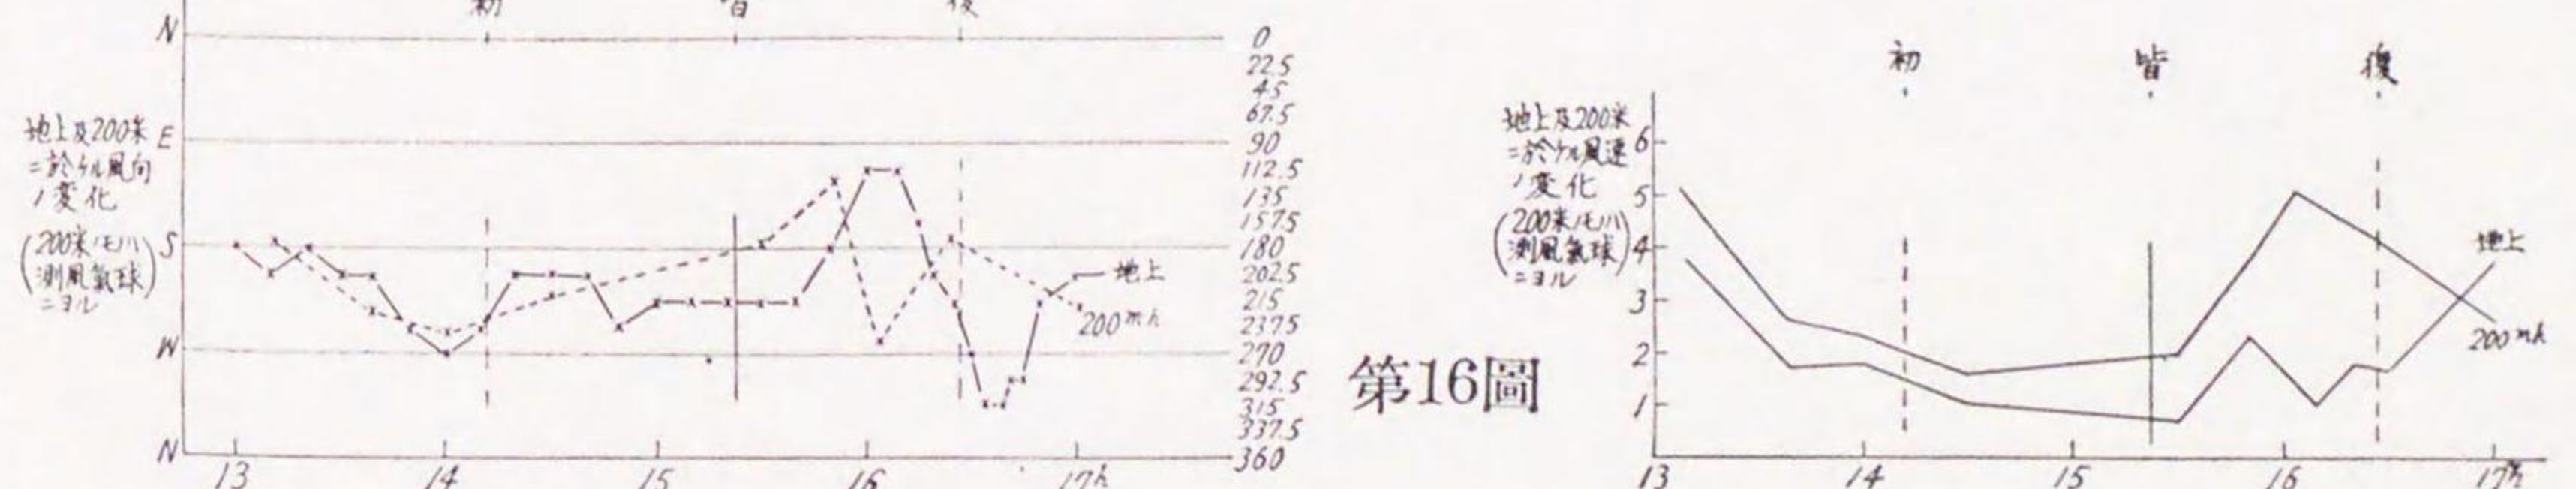 初 皆 復
N
E
S
W
N
地上及200米
ニ於ケル風向
ノ変化
(200米ノモノハ
測風氣球)
ニヨル
0
22.5
45
67.5
90
112.5
135
157.5
180
202.5
215
237.5
270
292.5
315
337.5
360
地上
200mh
13 14 15 16 17h
第16圖
初 皆 復
地上及200米
ニ於ケル風速
ノ変化
(200米ノモノハ
測風氣球)
ニヨル
6
5
4
3
2
1
地上
200mh
13 14 15 16 17h